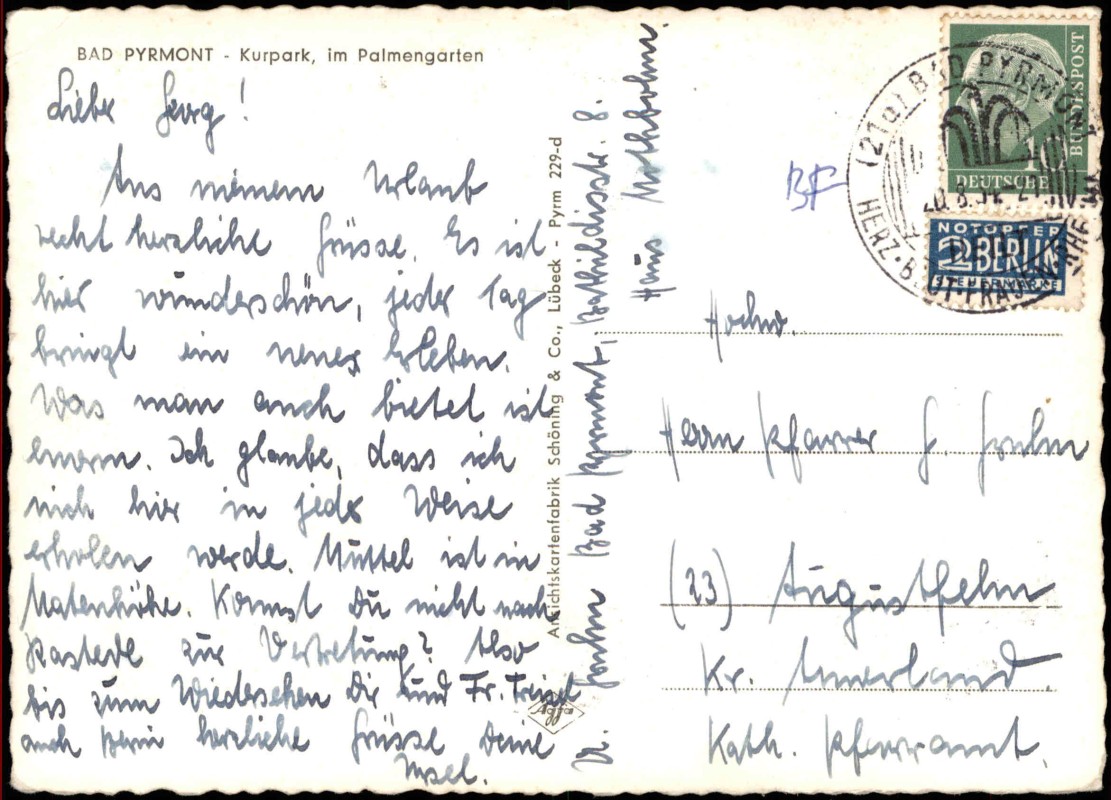 BAD PYRMONT - Kurpark, im Palmengarten
Lieber Georg!
Aus meinem Urlaub
recht herzliche Grüsse. Es ist
hier wunderschön, jeder Tag
bringt ein neues Erleben.
Was man auch bietet ist
enorm. Ich glaube, dass ich
mich hier in jeder Weise
erholen werde. Muttel ist in
Matenhöhe. Kommst Du nicht nach
Rastede zur Vertretung? Also
bis zum Wiedersehen Dir und Fr.
auch herzliche Grüsse Deine
Ursel.
Ansichtskartenfabrik Schöning & Co., Lübeck - Pyrm 229-d
Agfa
Bad Pyrmont, Bathildisstr. 8.
Haus
BF
(21a) BAD PYRMONT
20.8.54
HERZ
DEUTSCHE
BUNDESPOST
10
NOTOPFER
2 BERLIN
STEUERMARKE
Hochw.
Herrn Pfarrer G.
(23) Augustfehn
Kr. Ammerland.
Kath. Pfarramt.